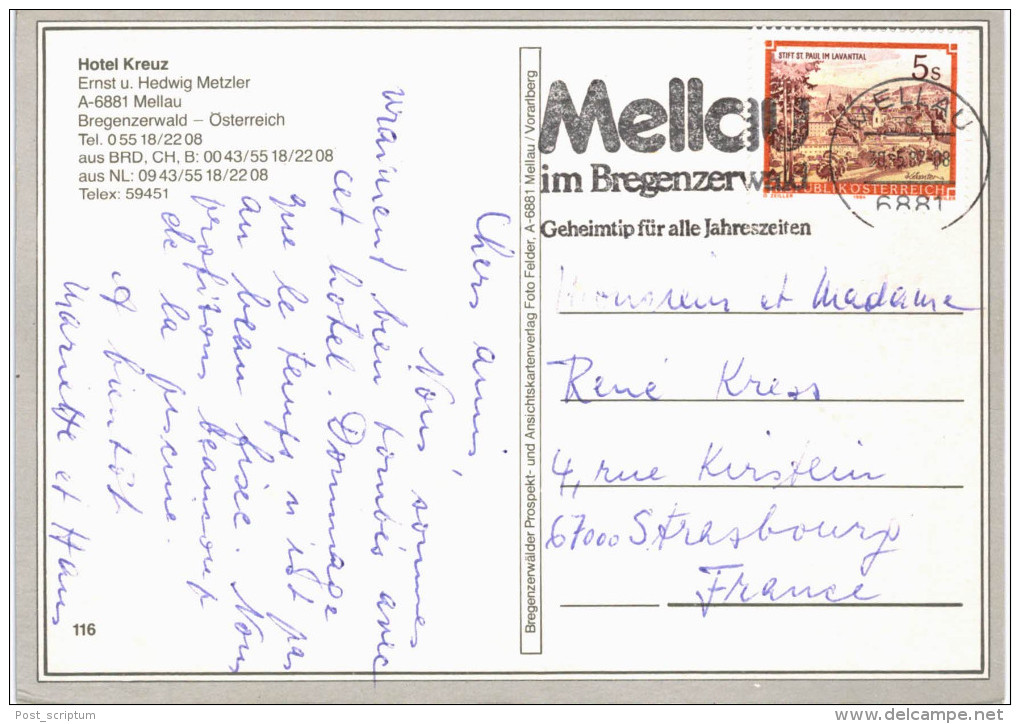 Hotel Kreuz
Ernst u. Hedwig Metzler
A-6881 Mellau
Bregenzerwald – Österreich
Tel. 0 55 18/22 08
aus BRD, CH, B: 00 43/55 18/22 08
aus NL: 09 43/55 18/22 08
Telex: 59451
Chers amis,
Nous sommes
vraiment bien tombés avec
cet hôtel. Dommage
que le temps n'est pas
au beau fixe. Nous
profitons beaucoup
de la piscine.
A bientôt
Mariette et Hans
116
Bregenzerwälder Prospekt- und Ansichtskartenverlag Foto Felder, A-6881 Mellau / Vorarlberg
Mellau
im Bregenzerwald
Geheimtip für alle Jahreszeiten
STIFT ST. PAUL IM LAVANTTAL
5 S
REPUBLIK ÖSTERREICH
MELLAU
6881
Monsieur et Madame
René Kress
4, rue Kirstein
67000 Strasbourg
France
Post_scriptum
delcampe.net